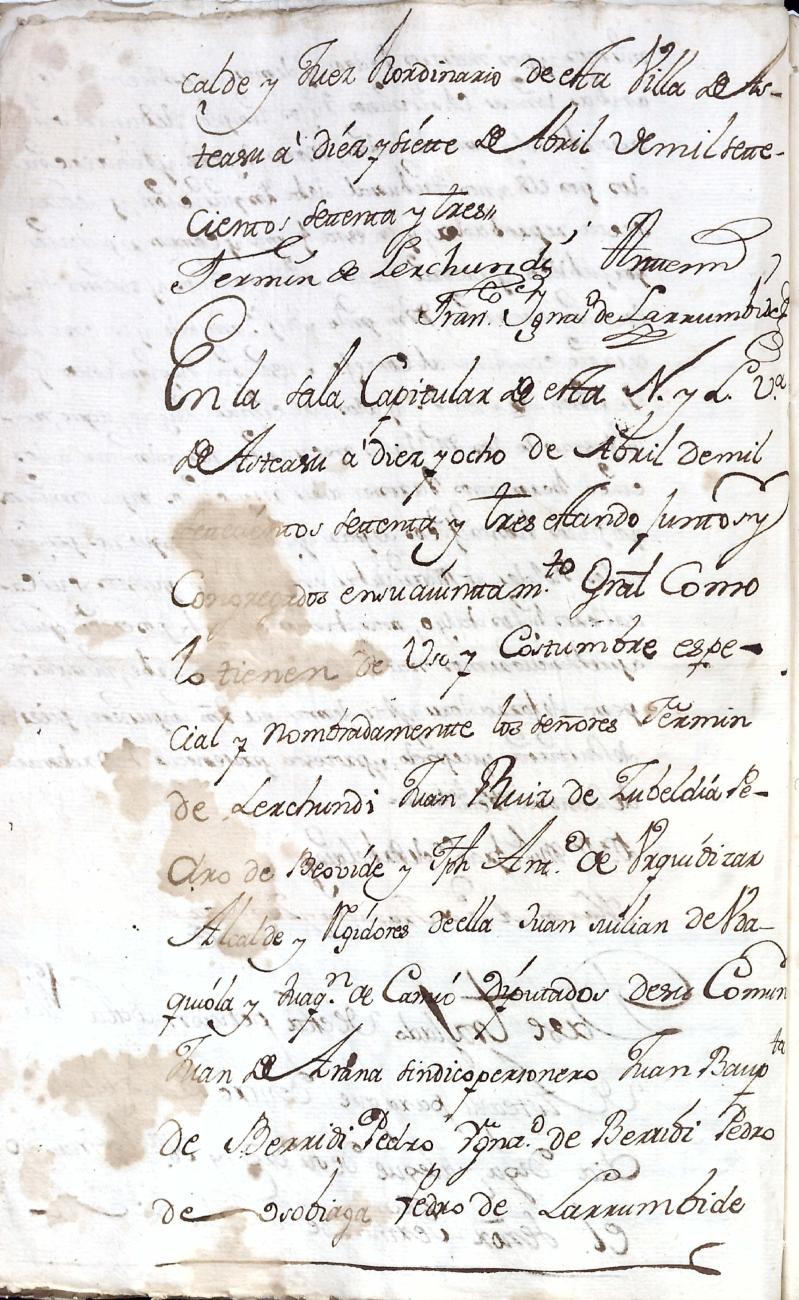 calde y Juez hordinario de esta Villa de As-
teasu a' diéz y siétte de Abril de mil sette-
cientos settenta y tres,,
Fermin de Lerchundi Antte mi
Fran.co Ygna.o de Larrumbide
En la sala Capitular de esta N. y L. V.a
de Asteasu a' diez y ocho de Abril de mil
settecientos settenta y tres estando Juntos y
Congregados en su aiuntam.to Gral Como
lo tienen de Uso y Costumbre espe-
cial y nombradamentte los señores Fermin
de Lerchundi Juan Ruiz de Zubeldiá Pe-
dro de Beovide y Jph Ant.o de Urquidizar
Alcalde y Rejidores de ella Juan Julian de Uda-
quióla y Juaq.n de Camió Diputados de su Comun
Juan de Arana sindico personero Juan Baup.ta
de Berridi Pedro Ygna.o de Berridi Pedro
de Ysobiaga Pedro de Larrumbide